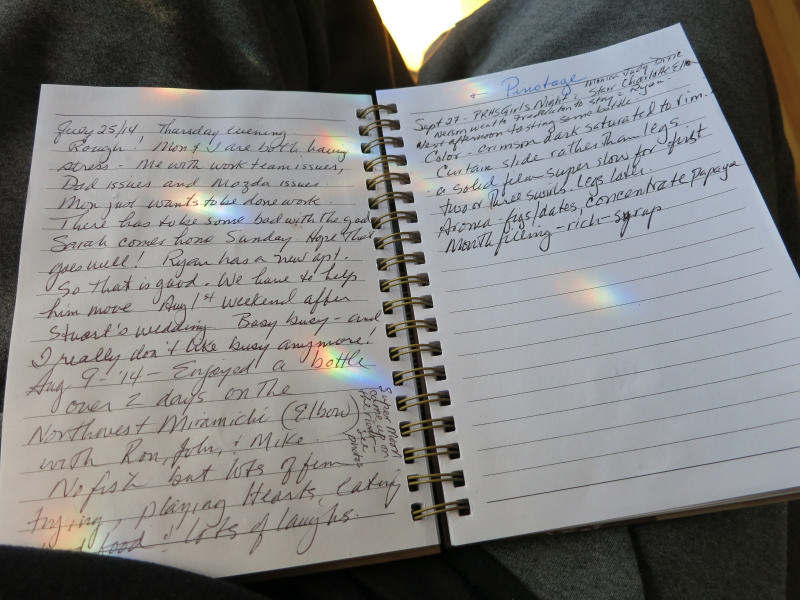 July 25/14, Thursday evening
Rough! Mon & I are both having
stress - Me with work team issues,
Dad issues and Mazda issues.
Mon just wants to be done work.
There has to be some bad with the good
Sarah comes home Sunday Hope that
goes well! Ryan has a new apt.
So that is good. We have to help
him move Aug 1st weekend after
Stuart's wedding. Busy busy - and
I really don't like busy anymore!
Aug 9 - '14 - Enjoyed a bottle
over 2 days on the
Northwest Miramichi (Elbow)
with Ron, John, & Mike.
No fish but lots of fun
trying, playing Hearts, eating
food & lots of laughs.
Super Moon
came up on
the river -
see
photos
Pinotage
Sept 27 - PRHS Girls Night: Monica Judy Dixie
Starr Charlotte Ellen
Nelson went to Fredericton to Ryan.
Next afternoon tasting same bottle.
Color - crimson dark saturated to rim.
Curtain slide rather than legs
- a solid film super slow for first
two or three swirls. Legs later.
Aroma - figs/dates, concentrate papaya
Mouth filling - rich - syrup